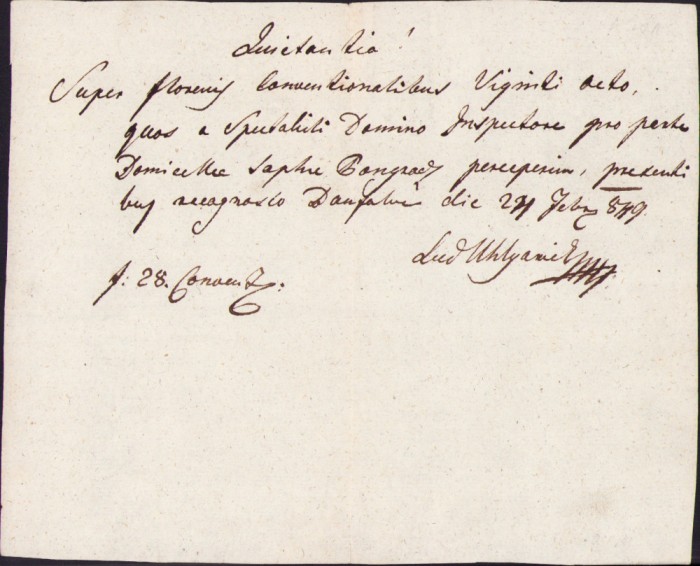 Quietantia!
Super florenis Conventionalibus Viginti octo,
quos a Spectabili Domino Inspectore pro parte
Domicellae Saphie Pongracz perceperim, presenti
bus recognosco Danfalvæ die 24 Febr 849.
Lud Uhlyarik
f: 28. Convent.